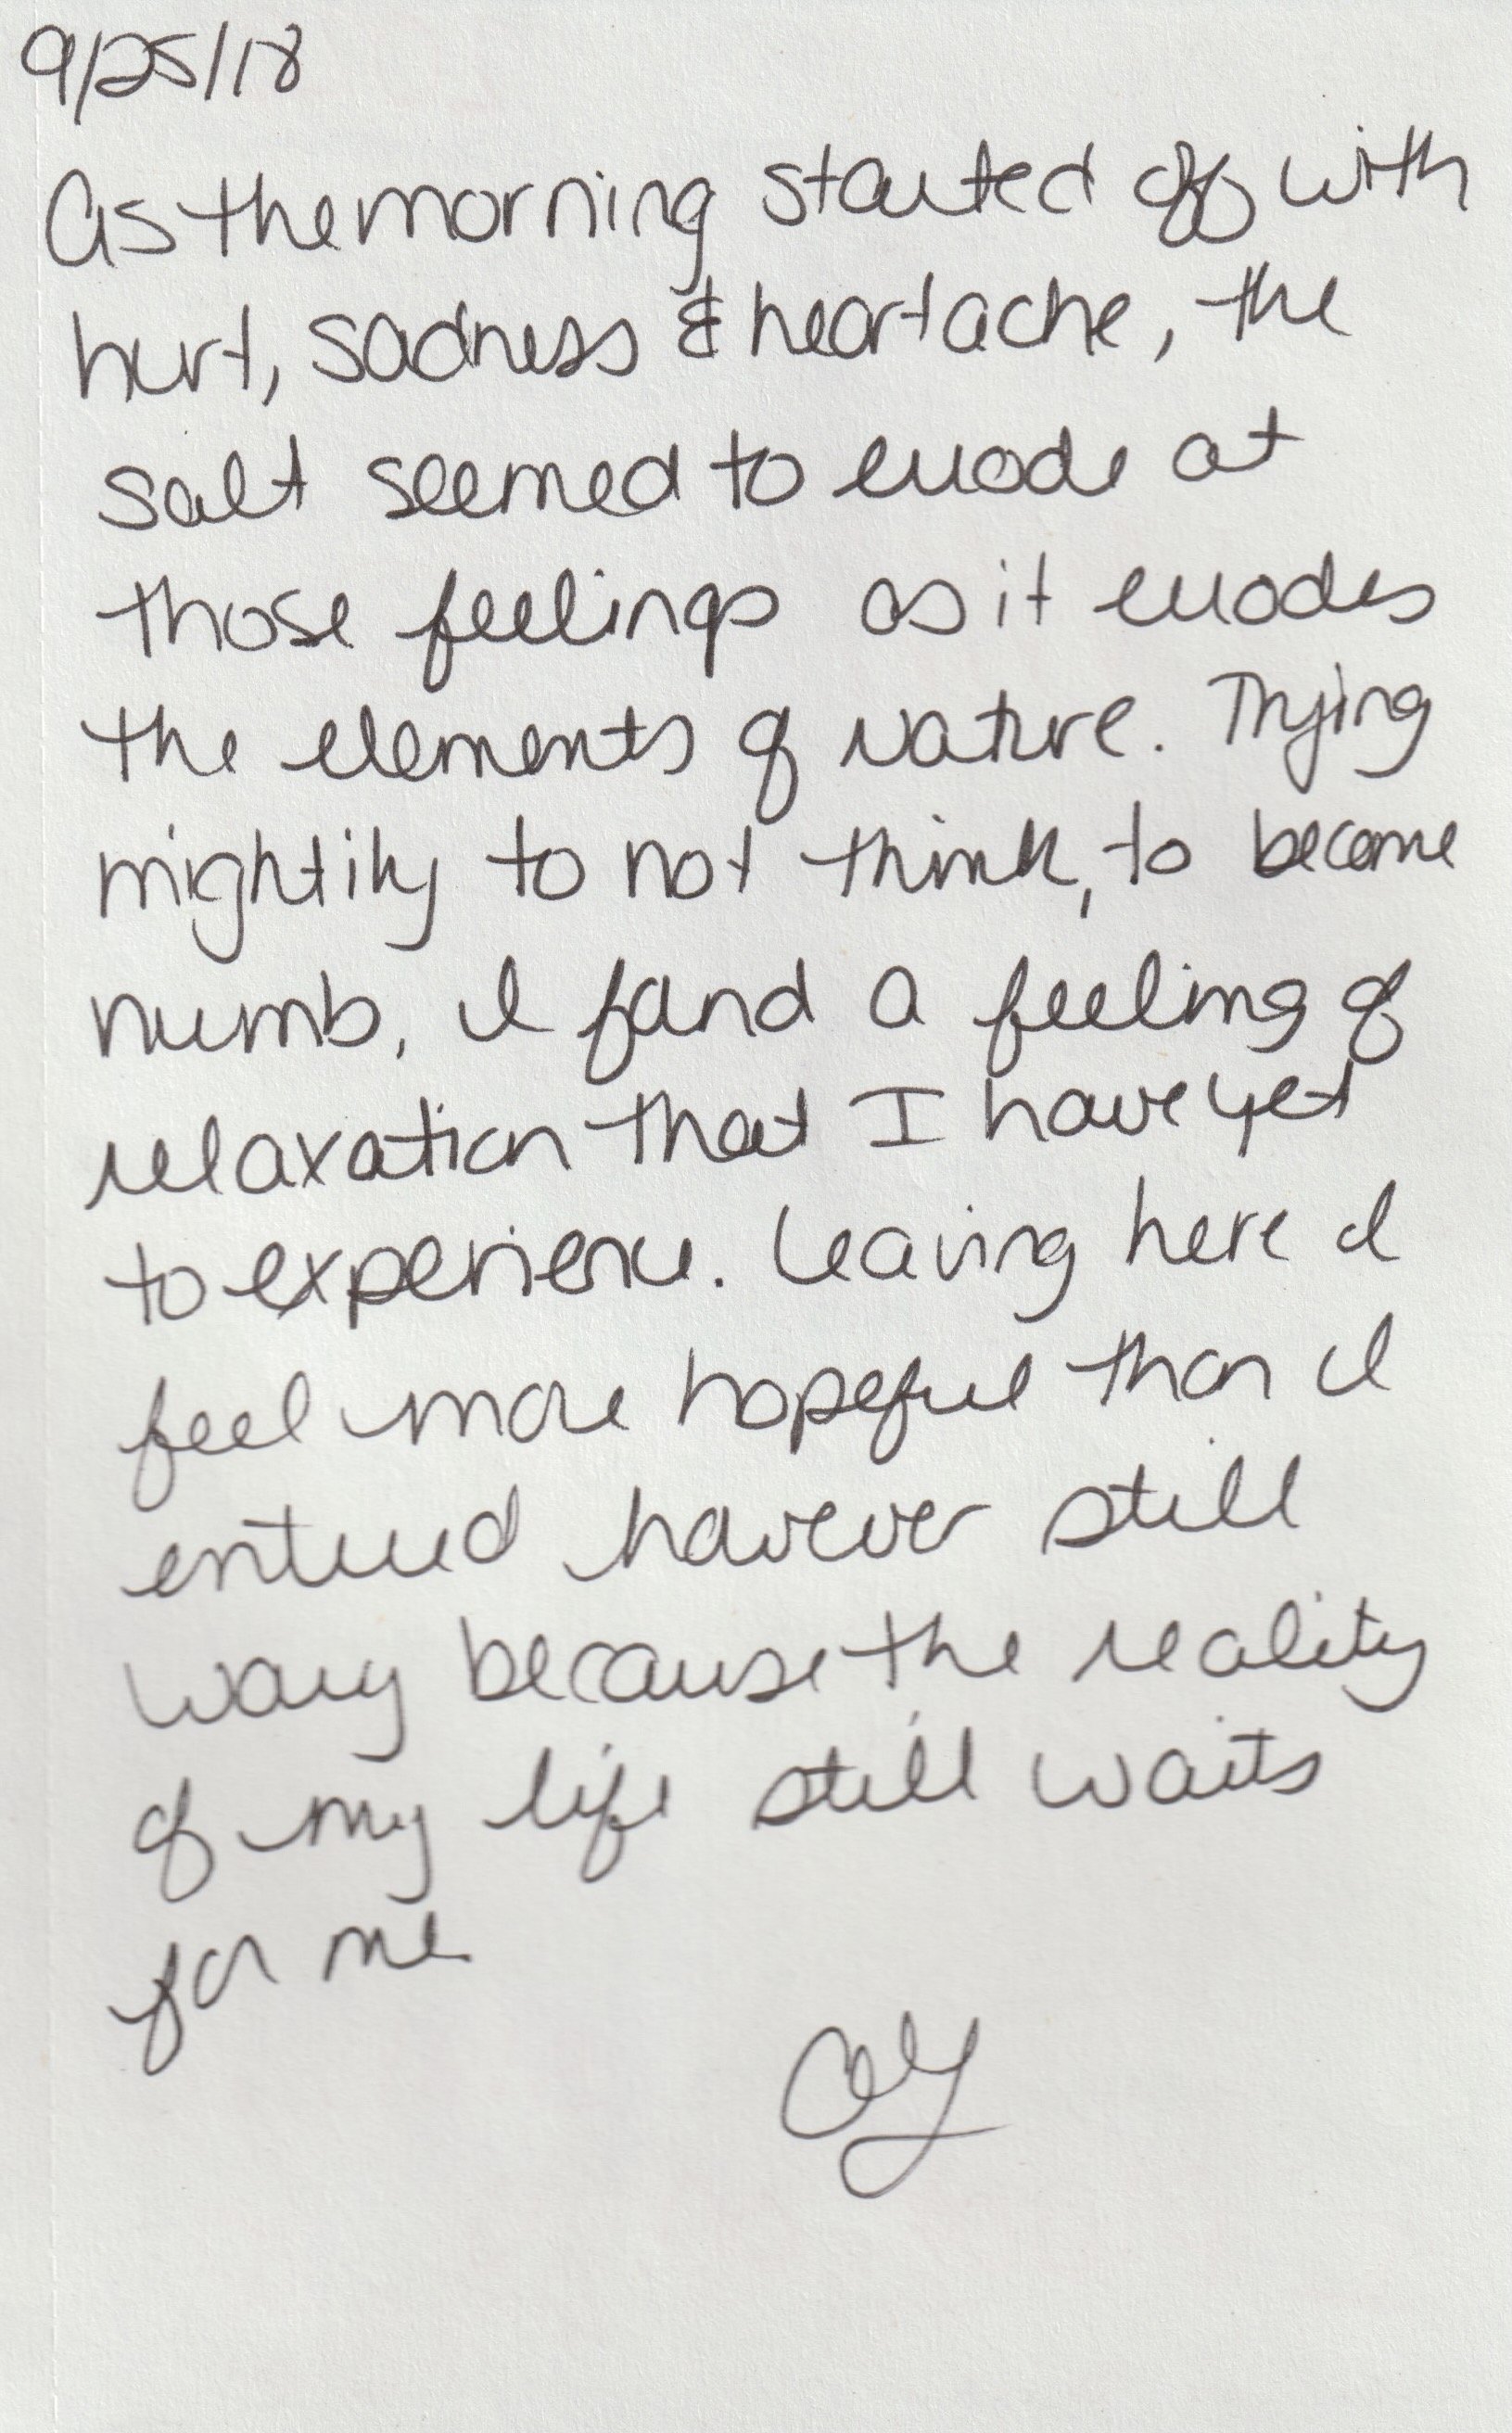 9/25/18
As the morning started off with
hurt, sadness & heartache, the
salt seemed to erode at
those feelings as it erodes
the elements of nature. Trying
mightily to not think, to become
numb, I found a feeling of
relaxation that I have yet
to experience. Leaving here I
feel more hopeful than I
entered however still
wary because the reality
of my life still waits
for me